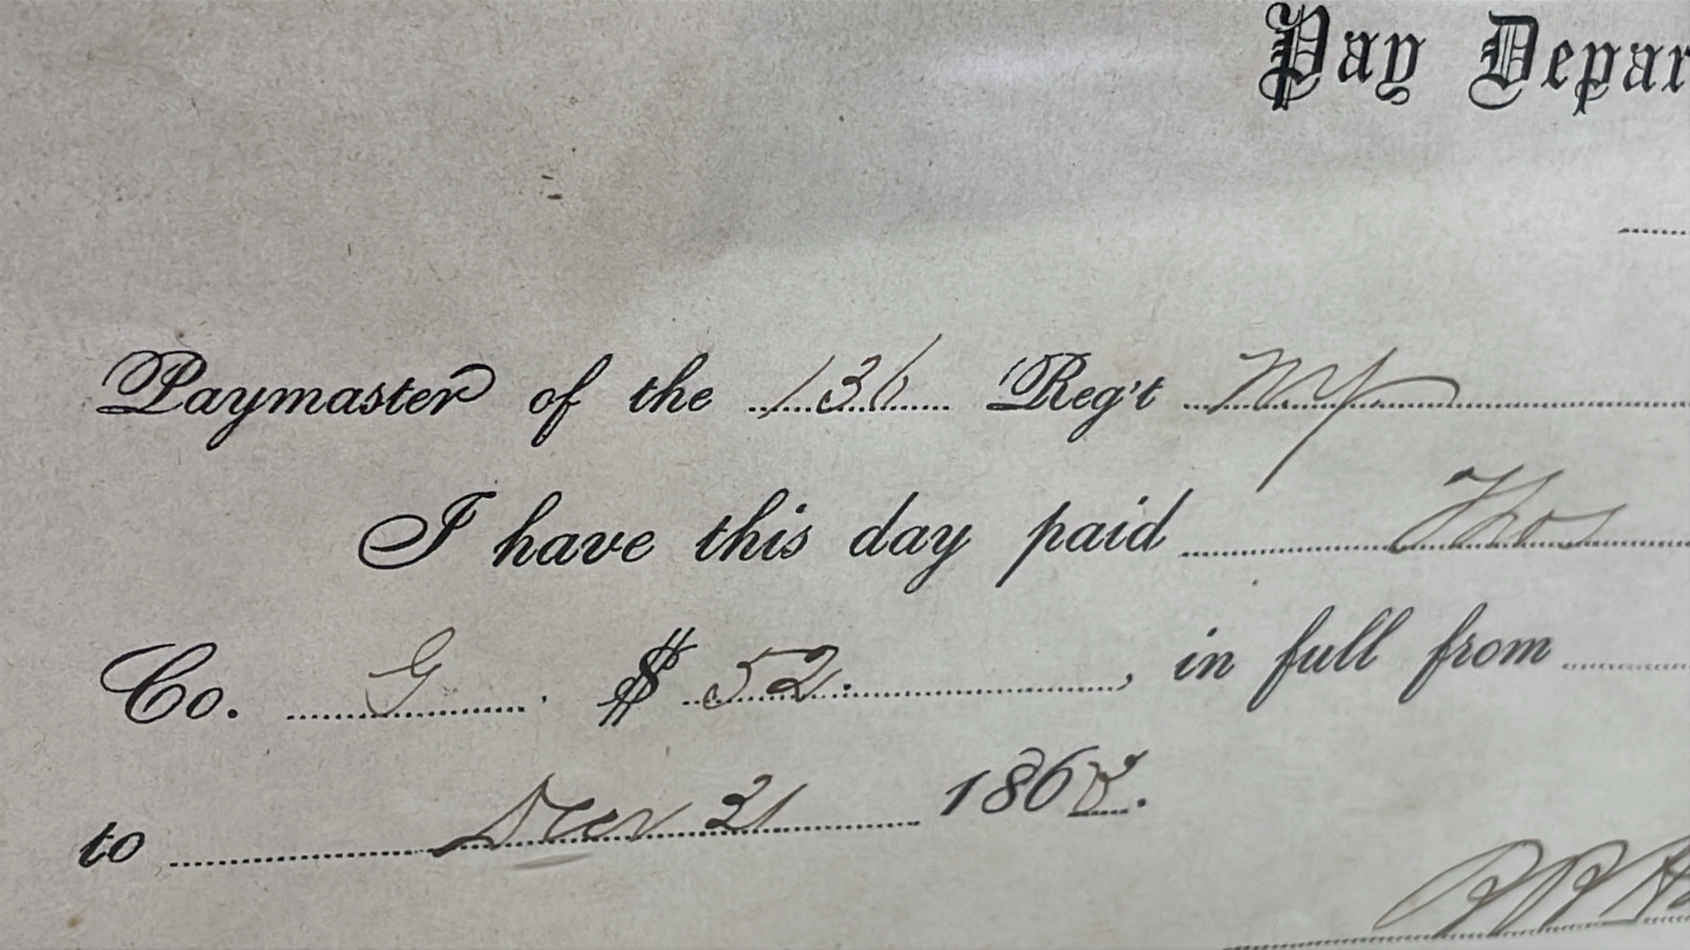 Pay Depar
Paymaster of the 136 Reg't NY
I have this day paid Thos
Co. G . $ 52. , in full from
to Dec 31 1863.